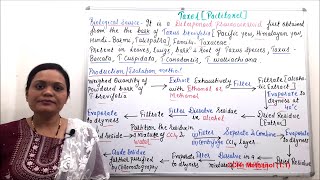 Taxol [Paclitaxel]
Biological source - It is a diterpenoid pharmaceutical first obtained
from the the bark of Taxus brevifolia [Pacific yew, Himalayan yew,
Hindi - Barmi, Talispatra] Family - Taxaceae
Present in leaves, twigs, bark & root of Taxus species, Taxus -
Baccata, T. Cuspidata, T. Canadensis, T. wallichiana
Production/Isolation method
weighed Quantity of Powdered bark of T. brevifolia
Extract Exhaustively with Ethanol or Methanol
Filter
Filtrate Alcoholic Extract
Evaporate to dryness at 40°C
Dried Residue
Dissolve Residue in alcohol
Filter
Evaporate to dryness
Partition the Residue in CCl4 & Water
Filter
Separate & Combine CCl4 layer
Evaporate to dryness
Dried Residue
Dissolve in
Filter
Evaporate to dryness
Crude Residue further purified by Chromatography
Methanol (1:1)